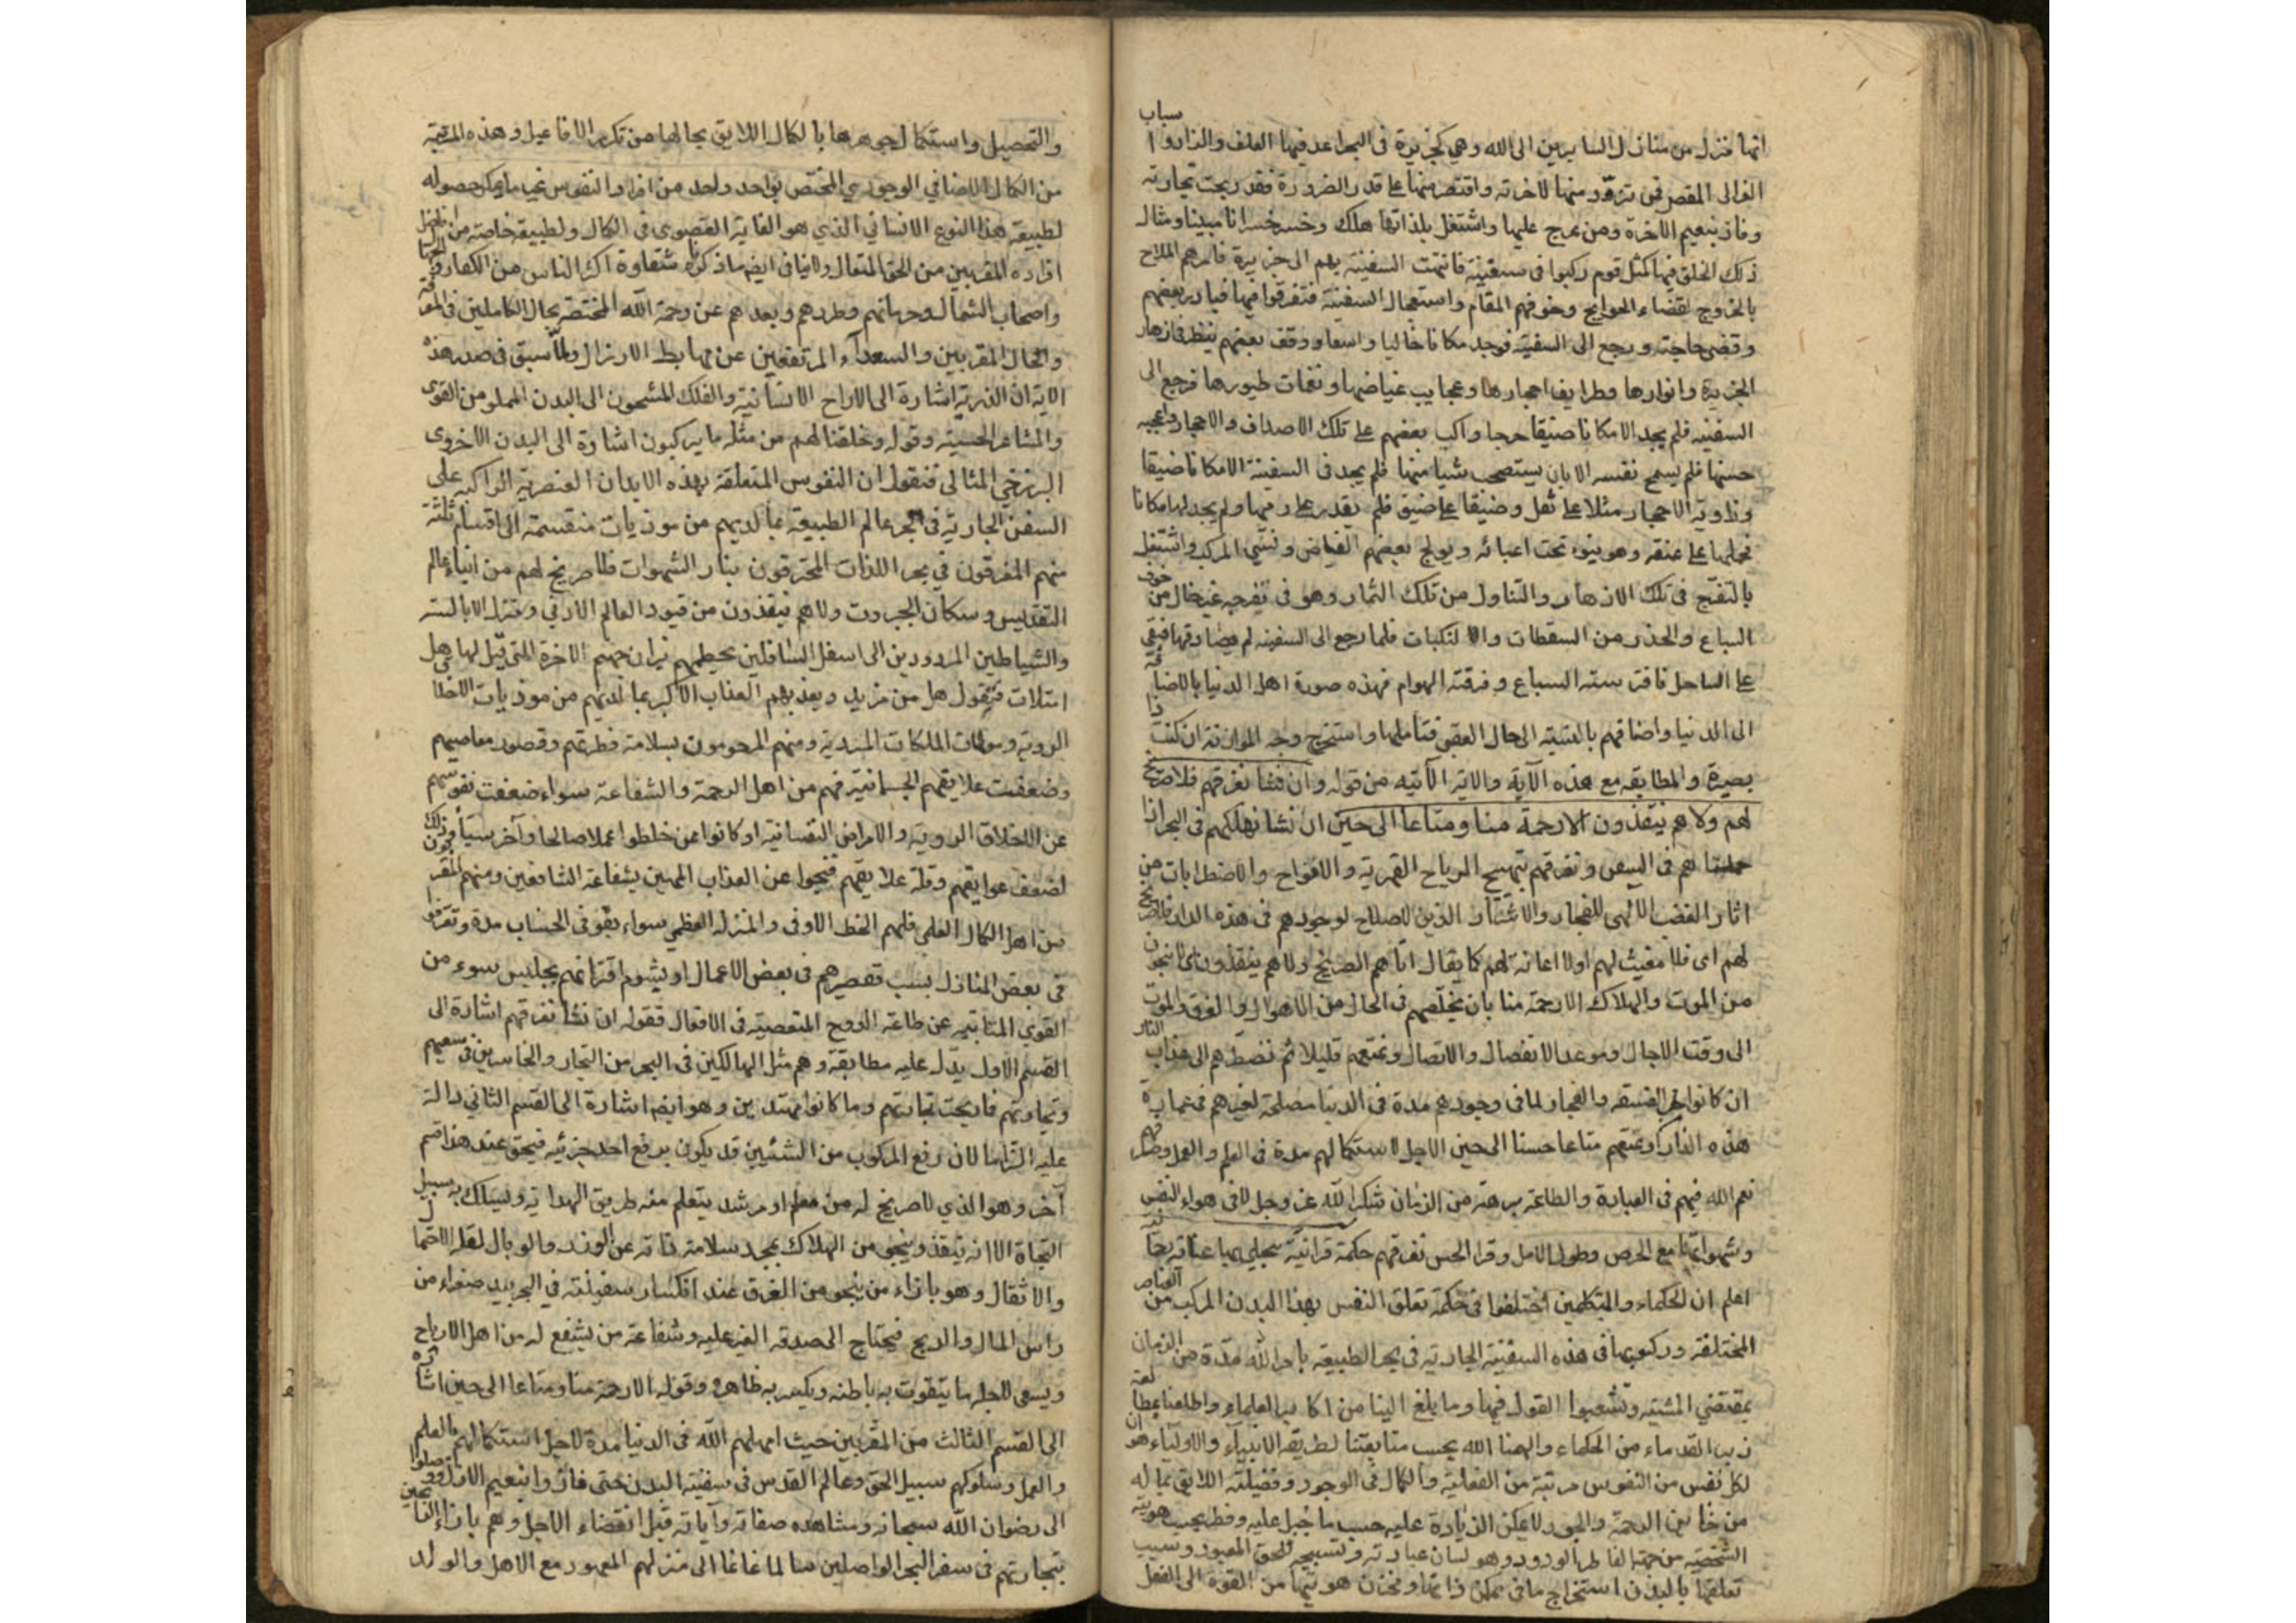 انها منزل من منازل السايرين الى الله وهي كجزيرة فى البحر اعد فيها العلف والزاد وا سباب
الى المقصر فمن تزود منها لآخرته واقتصر منها على قدر الضرورة فقد ربحت تجارته
وفاز بنعيم الآخرة ومن عرج عليها واشتغل بلذاتها هلك وخسر خسرانا مبينا ومثال
ذلك الخلق فيها كمثل قوم ركبوا فى سفينة فانتهت السفينة بهم الى جزيرة فامرهم الملاح
بالخروج لقضاء الحوايج وخوفهم المقام واستعجال السفينة فتفرقوا فيها فبادر بعضهم
وقضى حاجته ورجع الى السفينة فوجد مكانا خاليا واسعا ووقف بعضهم ينظر فى ازهار
الجزيرة وانوارها وطرايف احجارها وعجايب غياضها ونغمات طيورها فرجع الى
السفينه فلم يجد الا مكانا ضيقا حرجا واكب بعضهم على تلك الاصداف والاحجار واعجبه
حسنها فلم يسمح نفسه الا بان يستصحب شيا منها فلم يجد فى السفينة الا مكانا ضيقا
وزادته الاحجار مثلا على ثقل وضيقا على ضيق فلم يقدر على رميها ولم يجد لها مكانا
فحملها على عنقه وهو ينوء تحت اعبائه ويولج بعضهم الغياض ونسى المركب واشتغل
بالتفرج فى تلك الازهار والتناول من تلك الثمار وهو فى تفرجه غير خال من خوف
السباع والحذر من السقطات والنكبات فلما رجع الى السفينه لم يصادفها فبقى
على الساحل فافترسته السباع ومزقته الهوام فهذه صورة اهل الدنيا بالاضافة
الى الدنيا واضافتهم بالنسبة الى حال العقبى فتاملها واستخرج وجه الموازنة ان كنت ذا
بصيرة والمطابقه مع هذه الآية والآية الآتيه من قوله وان نشأ نغرقهم فلا صريخ
لهم ولا هم ينقذون الا رحمة منا ومتاعا الى حين ان نشأ نهلكهم فى البحر اذا
حملناهم فى السفن ونغرقهم بتهييج الرياح القهرية والامواج والاضطرابات من
اثار الغضب الالهى للفجار والاشرار الذين لا صلاح لوجودهم فى هذه الدار فلا صريخ
لهم اى فلا مغيث لهم اولا اغاثة لهم كما يقال اتاهم الصريخ ولا هم ينقذون اى لا ينجون
من الموت والهلاك الا رحمة منا بان نخلصهم فى الحال من الاهوال والغرق والموت
الى وقت الآجال وموعد الانفصال والاتصال ونمتعهم قليلا ثم نضطرهم الى عذاب النار
ان كانوا من الفسقه والفجار لما فى وجودهم مدة فى الدنيا مصلحة لغيرهم فى عمارة
هذه الدار او نمتعهم متاعا حسنا الى حين الاجل لاستكمالهم مدة فى العلم والعمل وصرفهم
نعم الله فيهم فى العبادة والطاعة برهة من الزمان شكرا لله عز وجل لا فى هواء النفس
وشهواتها مع الحرص وطول الامل وقرا الحسن نغرقهم حكمة قرانية
اعلم ان الحكماء والمتكلمين اختلفوا فى حكمة تعلق النفس بهذا البدن المركب من العناصر
المختلفة وركوبها فى هذه السفينة الجارية فى بحر الطبيعة بامر الله مدة من الزمان
بمقتضى المشية وتشعبوا القول فيها وما بلغ الينا من اكابر العلماء واطلعنا بمطالعة
زبر القدماء من الحكماء والهمنا الله بحسب متابعتنا لطريقة الانبياء والاولياء هو ان
لكل نفس من النفوس مرتبة من الفعلية والكمال فى الوجود وفضيلته اللايق بما له
من خزائن الرحمة والجود لا يمكن الزيادة عليه حسب ما جبل عليه وفطر بحسب هويته
الشخصية من جهة الفاطر الودود وهو لسان عبادته وتسبيحه للحق المعبود وسبب
تعلقها بالبدن استخراج ما فى مكمن ذاتها ومخزن هويتها من القوة الى الفعل
والتحصيل واستكمال جوهرها بالكمال اللايق بحالها من تكرر الافاعيل وهذه المرتبة
من الكمال الاضافي الوجودي المختص بواحد واحد من افراد النفوس غير ما يمكن حصوله
لطبيعة هذا النوع الانساني الذي هو الغاية القصوى فى الكمال ولطبيعة خاصة من افاضل
افراده المقربين من الحق المتعال ولا ينافى ايضا ما ذكرناه شقاوة اكثر الناس من الكفار والجهال
واصحاب الشمال وحرمانهم وطردهم وبعدهم عن رحمة الله المختصة بحال الكاملين فى المعرفة
والحال المقربين والسعدآء المرتفعين عن مهابط الارذال ولما سبق فى صدر هذه
الآية ان الذرية اشارة الى الارواح الانسانية والفلك المشحون الى البدن المملو من القوى
والمشاعر الحسية وقوله وخلقنا لهم من مثله ما يركبون اشارة الى البدن الاخروى
البرزخي المثالي فنقول ان النفوس المتعلقة بهذه الابدان العنصرية الراكبه على
السفن الجارية فى بحر عالم الطبيعة بما لديهم من موذيات منقسمة الى اقسام ثلثة
منهم المغرقون في بحر اللذات المحترقون بنار الشهوات فلا صريخ لهم من ابناء عالم
التقديس وسكان الجبروت ولا هم ينقذون من قيود العالم الادنى ومنزل الابالسة
والشياطين المردودين الى اسفل السافلين يحيطهم نيران جهنم الآخرة التى قيل لها هل
امتلات فتقول هل من مزيد ويعذبهم العذاب الاكبر بما لديهم من موذيات الاخلاق
الرديه وموبقات الملكات المرديه ومنهم المرحومون بسلامة فطرتهم وقصور معاصيهم
وضعفت علايقهم الجسمانية فهم من اهل الرحمة والشفاعة سواء ضعفت نفوسهم
عن الاخلاق الرديه والامراض النفسانية او كانوا ممن خلطوا عملا صالحا وآخر سيئا فيكون ذلك
لضعف عوايقهم وقلة علايقهم فنجوا عن العذاب المهين بشفاعة الشافعين ومنهم المقربون
من اهل الكمال العلمي فلهم الحظ الاوفى والمنزلة العظمى سواء بقوا فى الحساب مدة وتعوقوا
فى بعض المنازل بسبب تقصيرهم فى بعض الاعمال او بشوم اقترانهم بجليس سوء من
القوى المتابيه عن طاعة الروح المتعصية فى الافعال فقوله ان نشأ نغرقهم اشارة الى
القسم الاول يدل عليه مطابقة وهم مثل الهالكين فى البحر من التجار والخاسرين فى سعيهم
وتجارتهم فما ربحت تجارتهم وما كانوا مهتدين وهو ايضا اشارة الى القسم الثاني دالة
عليه التزاما لان رفع المركوب من الشيئين قد يكون برفع احد جزئيه فبحق عند هذا قسم
آخر وهو الذي لا صريخ له من معلم او مرشد يتعلم منه طريق الهداية ويسلك به سبيل
النجاة الا انه ينقذ وينجو من الهلاك بمجرد سلامة ذاته عن الوزر والوبال لقلة الاحمال
والاثقال وهو بازاء من ينجو من الغرق عند انكسار سفينته في البحر بيد صفراء من
راس المال والربح فيحتاج الى صدقة الغير عليه وشفاعة من يشفع له من اهل الارباح
ويسعى لاجله ما يتقوت به باطنه ويكسر به ظاهره وقوله الا رحمة منا ومتاعا الى حين اشارة
الى القسم الثالث من المقربين حيث امهلهم الله فى الدنيا مدة لاجل استكمالهم بالعلم
والعمل وسلوكهم سبيل الحق وعالم القدس فى سفينة البدن حتى فازوا بنعيم الابد ووصلوا
الى رضوان الله سبحانه ومشاهده صفاته وآياته قبل انقضاء الاجل وهم بازاء الفايزين
بتجارتهم فى سفر البحر الواصلين سالما غانما الى منزلهم المعهود مع الاهل والولد